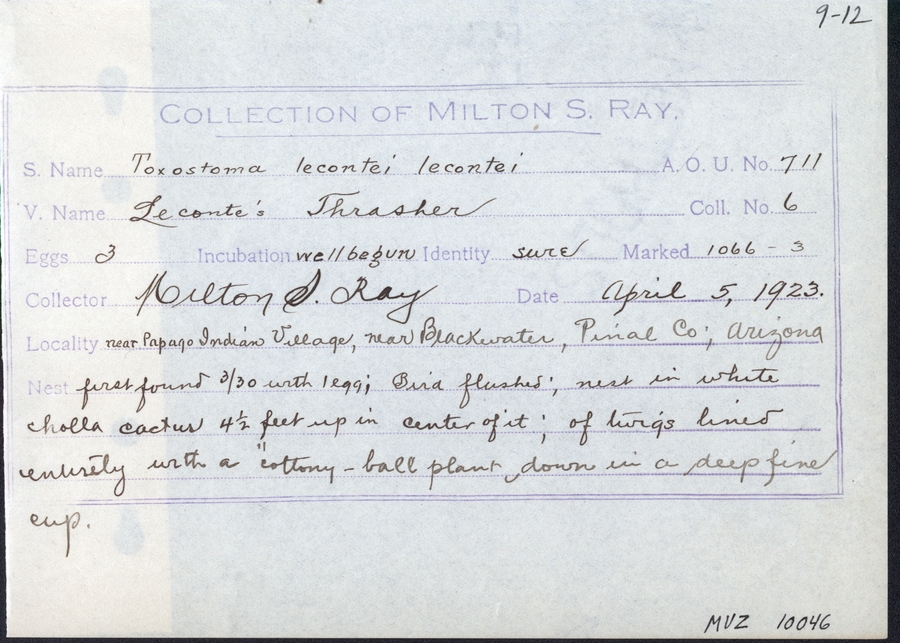 9-12
COLLECTION OF MILTON S. RAY.
S. Name Toxostoma lecontei lecontei A. O. U. No. 711
V. Name Leconte's Thrasher Coll. No. 6
Eggs 3 Incubation well begun Identity sure Marked 1066 - 3
Collector Milton S. Ray Date April 5, 1923.
Locality near Papago Indian Village, near Blackwater, Pinal Co; Arizona
Nest first found 3/30 with 1 egg; Bird flushed; nest in white
cholla cactus 4½ feet up in center of it; of twigs lined
entirely with a "cottony-ball plant down in a deep fine
cup.
MVZ 10046